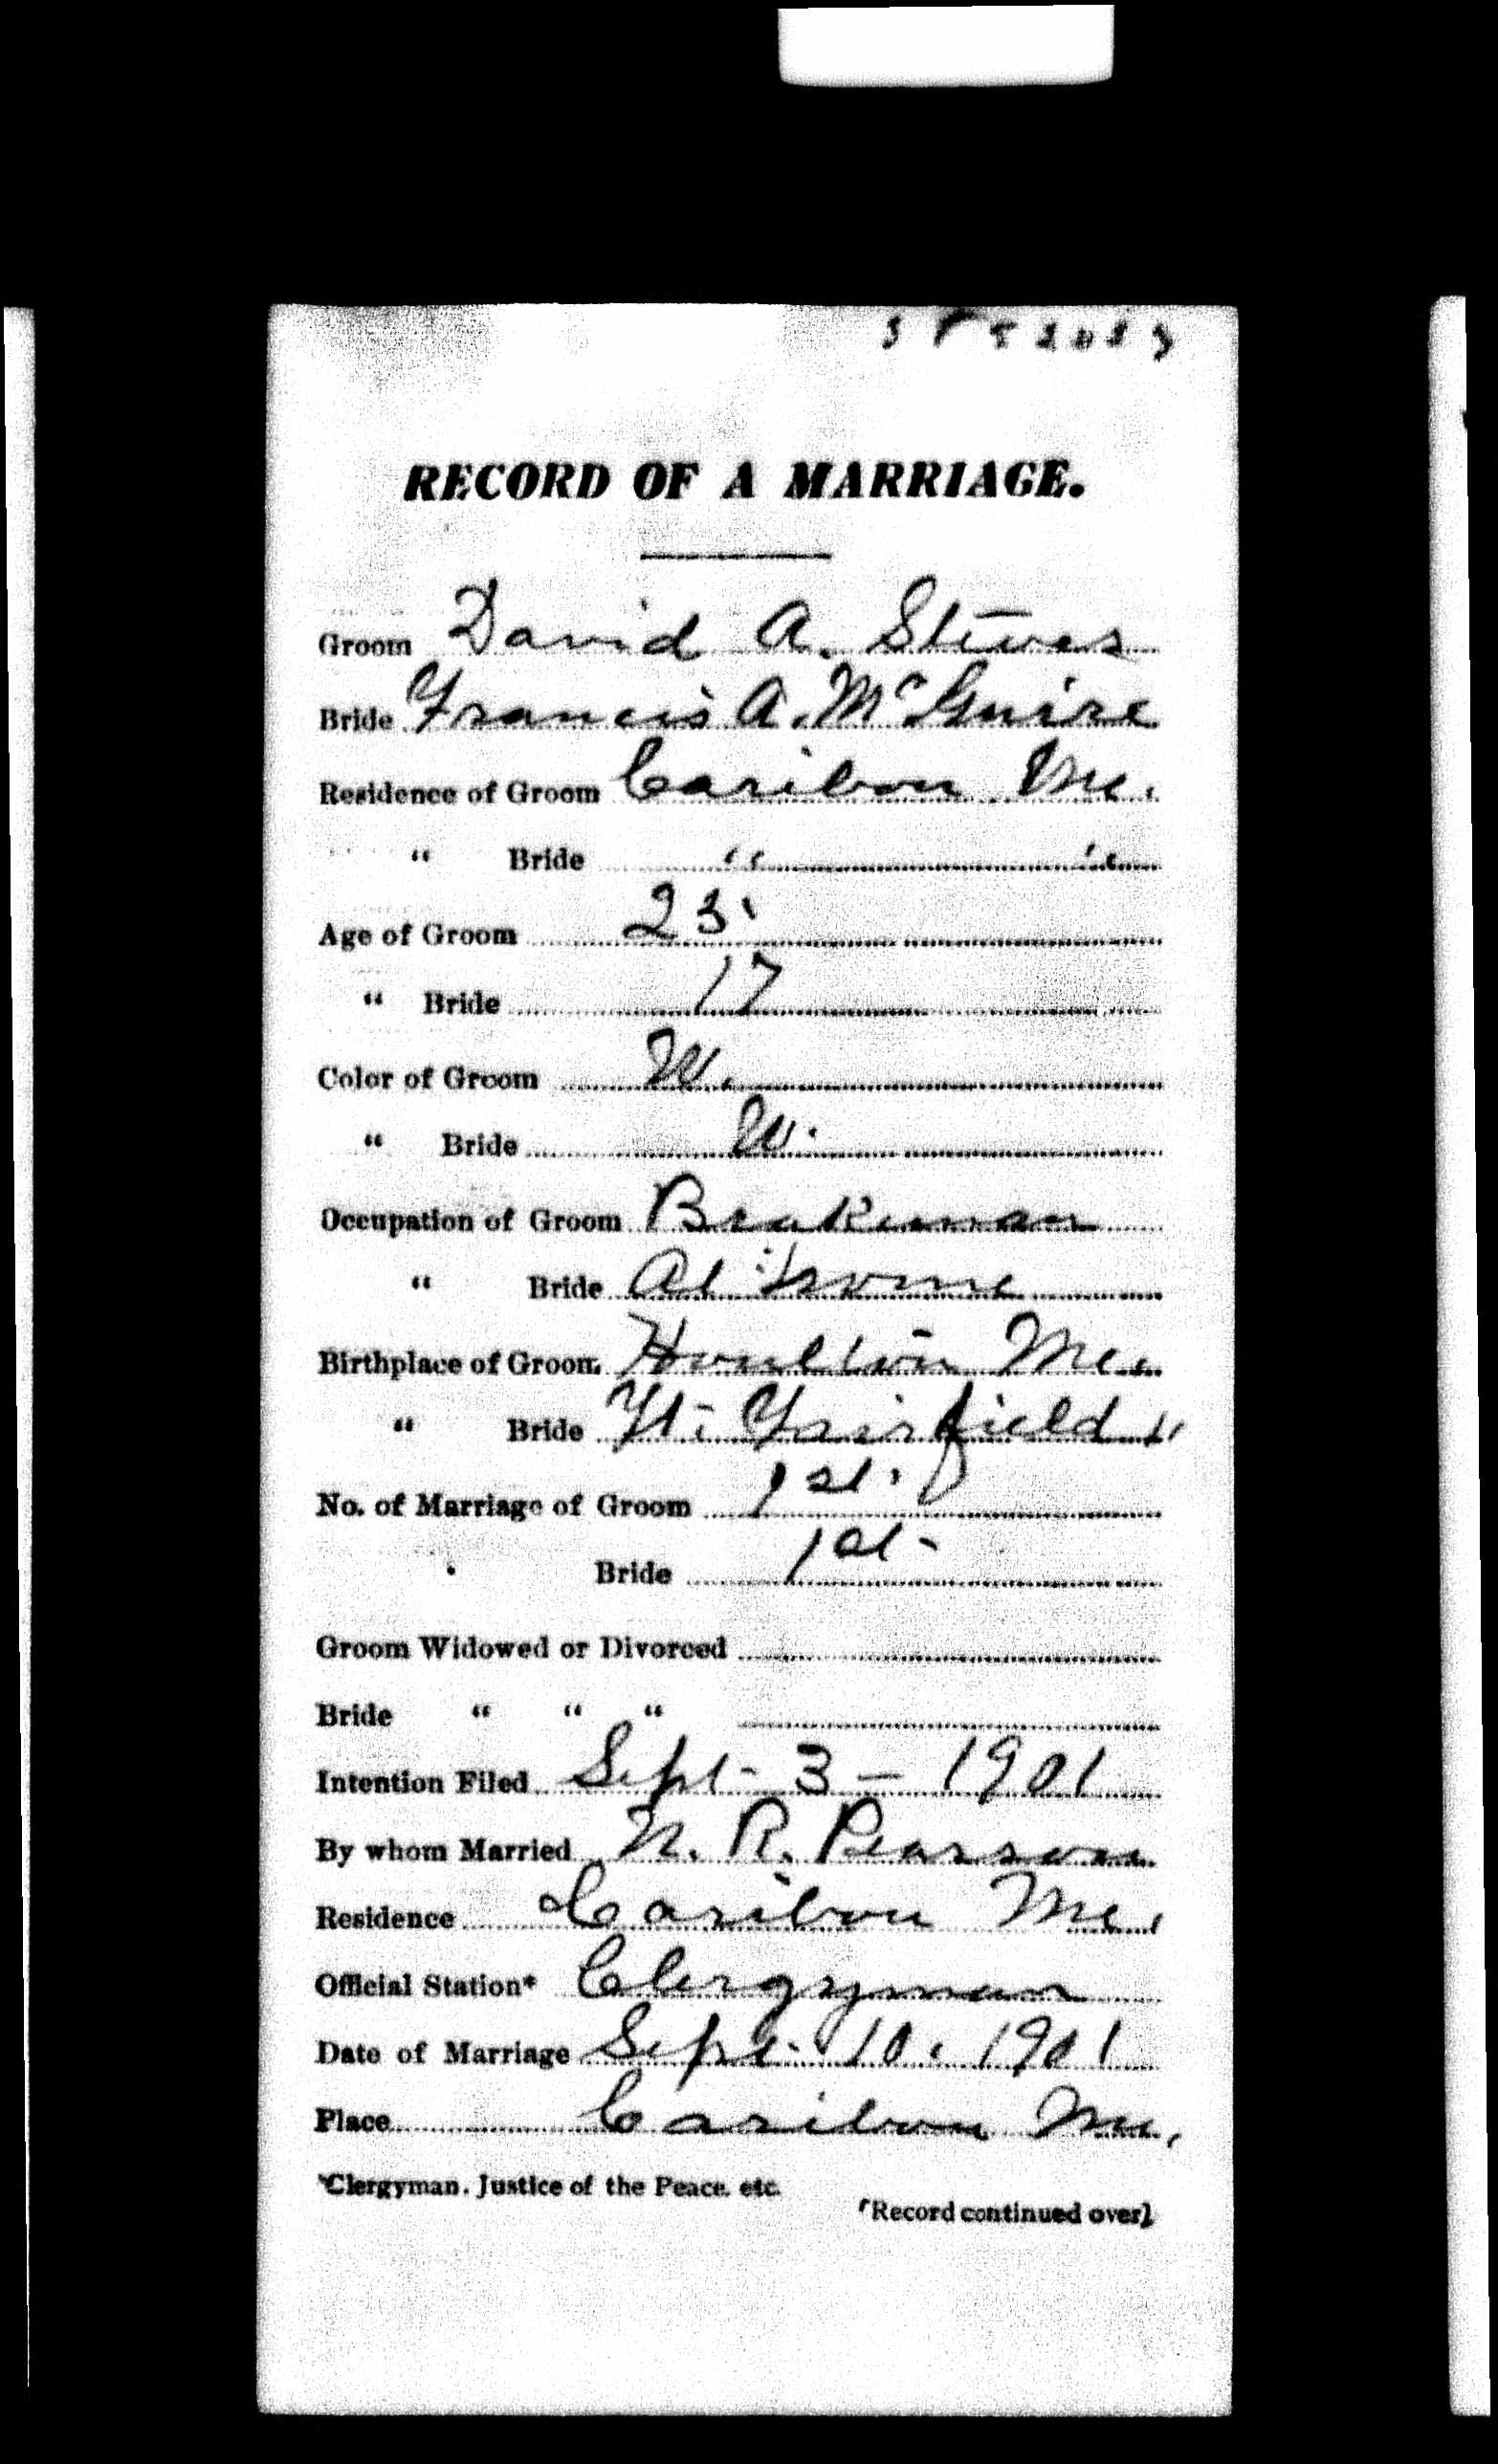 RECORD OF A MARRIAGE.
Groom David A. Steves
Bride Francis A. McGuire
Residence of Groom Caribou Me.
" Bride " "
Age of Groom 23
" Bride 17
Color of Groom W.
" Bride W.
Occupation of Groom Brakeman
" Bride At home
Birthplace of Groom Houlton Me.
" Bride Ft. Fairfield "
No. of Marriage of Groom 1st.
Bride 1st-
Groom Widowed or Divorced
Bride " " "
Intention Filed Sept- 3 - 1901
By whom Married N. R. Pearson
Residence Caribou Me.
Official Station* Clergyman
Date of Marriage Sept. 10. 1901
Place Caribou Me.
*Clergyman. Justice of the Peace. etc.
(Record continued over)